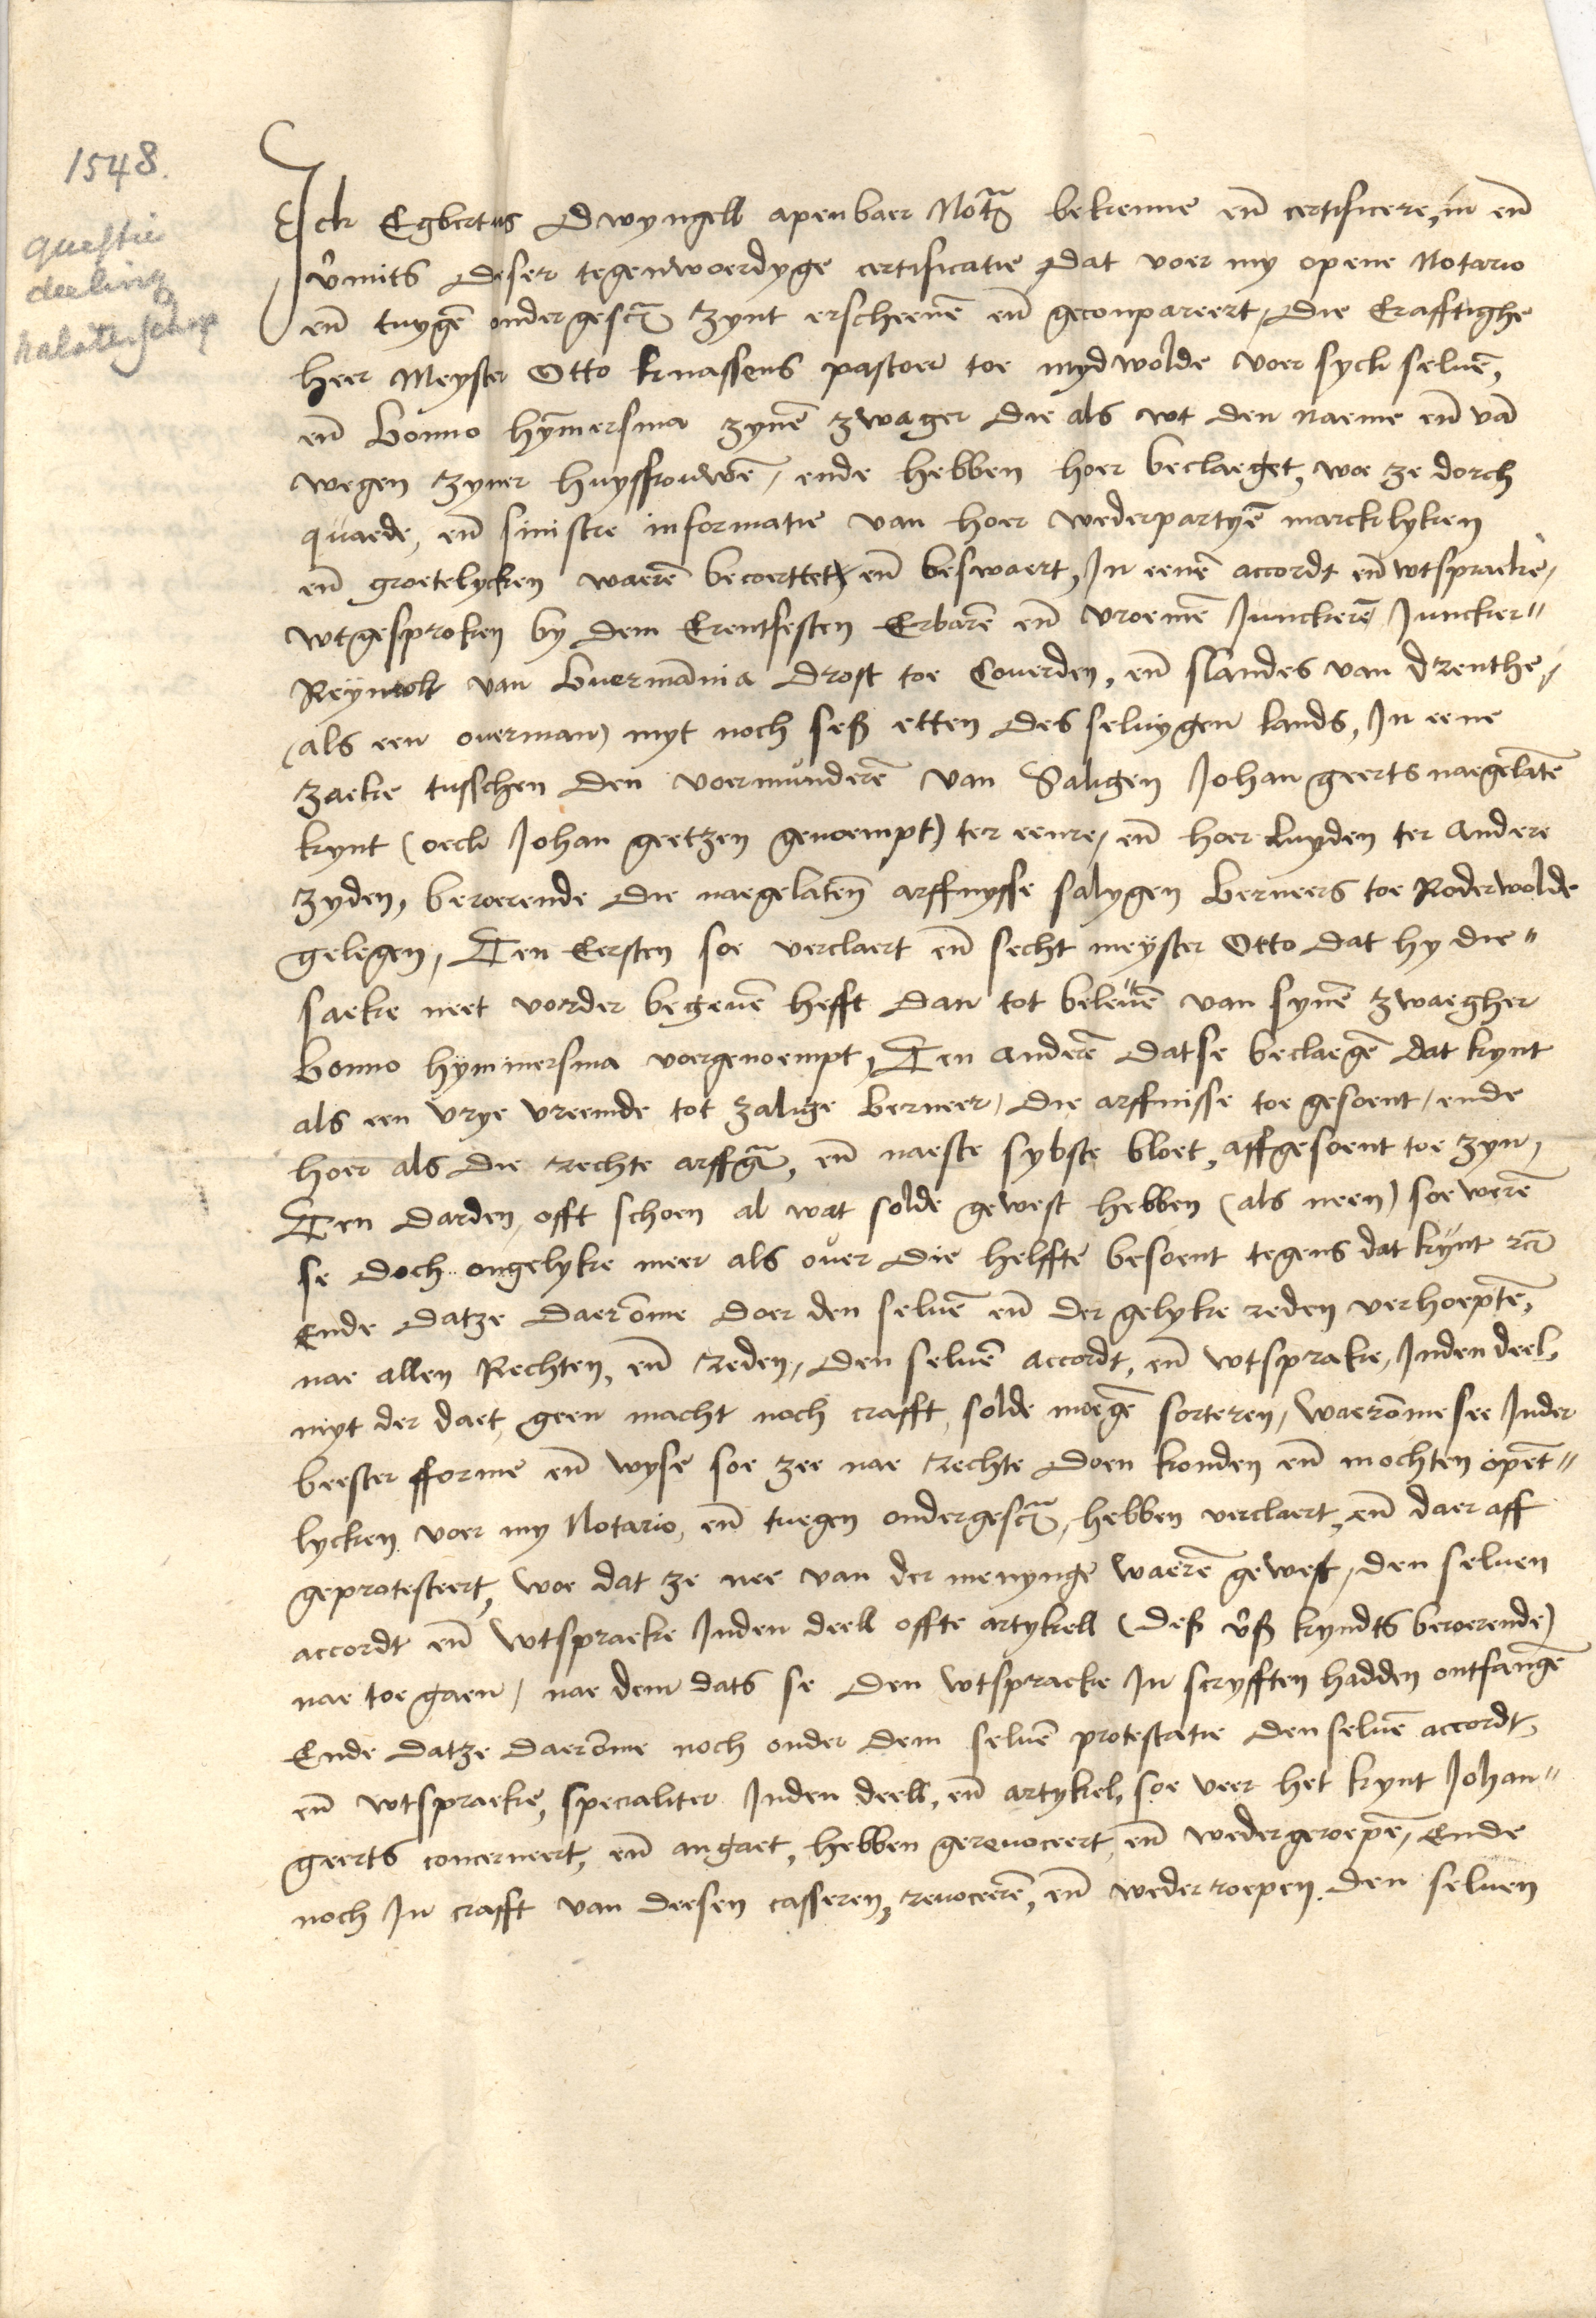 1548.
questie
deeling
nalatenschap
Ick Egbertus Dwyngell apenbaer Notr̃ bekenne en̄ certificere, in en̄
v̂mits deser tegenwoerdyge certificatie dat voer my opene Notario
en̄ tuygē ondergescr̃ zynt erscheenē en̄ geconpareert, die Erafftighe
heer Meyster Otto knassens pastoer toe mydwolde voer sych seluē,
en̄ bonno hȳmersma zynē zwager die als wt den naeme en̄ vā
wegen zyner huysfrouwē, ende hebben hoer beclaeget, woe ze dorch
quaede, en̄ sinistre informatie van hoer wederpartyē marcklyken
en̄ groetelycken waerē becoerttet en̄ beswaert, In eenē accordt en̄ wtspracke,
wtgesproken by dem Erentfesten Erbarē en̄ vroemē Junckerē Juncker"
Reÿnolt van buermānia drost toe Couerden, en̄ slandes van drenthe,
(als een ouerman) myt noch seß etten des seluygen lands, In eene
zaeke tusschen den voermunderē van Saligen Johan geerts naegelatē
kynt (oeck Johan geetzen genoempt) ter eenre, en̄ hoer luyden ter andere
zyden, beroerende die naegelatē arffnysse salygen berneers toe Roderwolde
gelegen, Ten Eersten soe verclaert en̄ secht meyster Otto dat hy die"
saeke neet vorder begeuē hefft dan tot beleuē van synē zwaegher
bonno hÿmmersma voergenoempt, Ten anderē datse beclaegē dat kynt
als een vrye vreemde tot zalige berneer, die arffnisse toe gesoent, ende
hoer als die rechte arffgr̃, en̄ naeste sybste bloet, affgesoent toe zyn,
Ten darden, offt schoen al wat solde gewest hebben (als neen) soe werē
se doch ongelyke meer als ouer die helffte besoent tegens dat kynt
Ende datze daerōme doer den seluē en̄ der gelyke reden verhoeptē,
nae allen Rechten, en̄ reden, den seluē accordt, en̄ wtsprake, Inden deel,
myt der daet, geen macht noch crafft, solde moegē sorteren, waerōme see Inder
beester fforme en̄ wyse soe zee nae rechte doen konden en̄ mochten opēt"
lycken voer my Notario, en̄ tuegen ondergescr̃, hebben verclaert, en̄ daer aff
geprotesteert, woe dat ze nee van der menynge waerē gewest, den seluen
accordt en̄ wtspraeke Inden deell offte artykell (deß v̂ß kyndts beroerende)
nae toe gaen, nae dem dats se den wtspracke In scryfften hadden ontfangē
Ende datze daerōme noch onder dem seluē protestatie den seluē accordt,
en̄ wtspraeke, specialiter Inden deell, en̄ artykel, soe veer het kynt Johan"
geerts concerneert, en̄ angaet, hebben gereuoceert, en̄ wedergeroepē, Ende
noch In crafft van deesen casseren, reuocerē, en̄ wederroepen. den seluen